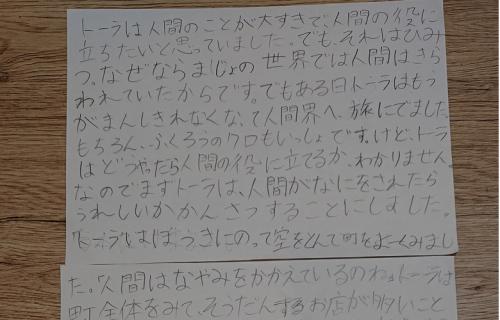 トーラは人間のことが大すきで人間の役に
立ちたいと思っていました。でも、それはひみ
つ。なぜならまじょの世界では人間はきら
われていたからです。でもある日トーラはもう
がまんしきれなくなって人間界へ、旅にでました。
もちろん、ふくろうのクロもいっしょです。けど、トーラ
はどうやったら人間の役に立てるか、わかりません。
なのでまずトーラは、人間がなにをされたら
うれしいかかんさつすることにしました。
トーラはほうきにのって空をとんで町をよーくみまし
た。「人間はなやみをかかえているのね」トーラは
町全体をみて、そうだんするお店が多いこと